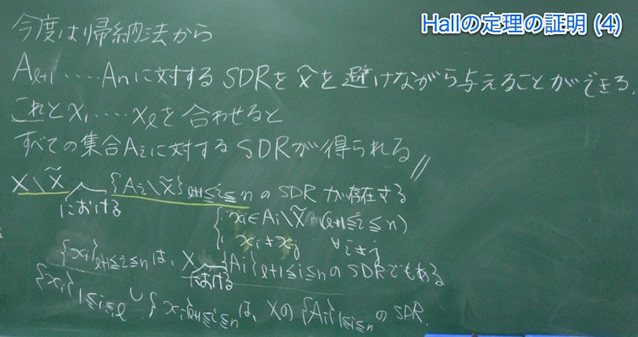 Hallの定理の証明 (4)
今度は帰納法から
Aℓ+1 ‥‥ Anに対するSDRをX̃を避けながら与えることができる.
これとx1, ‥‥ xℓを合わせると
すべての集合Aiに対するSDRが得られる//
X\X̃ における {Ai\X̃}ℓ+1≦i≦n の SDR が存在する
{ xi∈Ai\X̃ (ℓ+1≦i≦n)
xi≠xj ∀i≠j
{xi}ℓ+1≦i≦n は、X における {Ai}ℓ+1≦i≦n の SDR でもある
{xi}1≦i≦ℓ ∪ {xi}ℓ+1≦i≦n は、Xの{Ai}1≦i≦n の SDR.